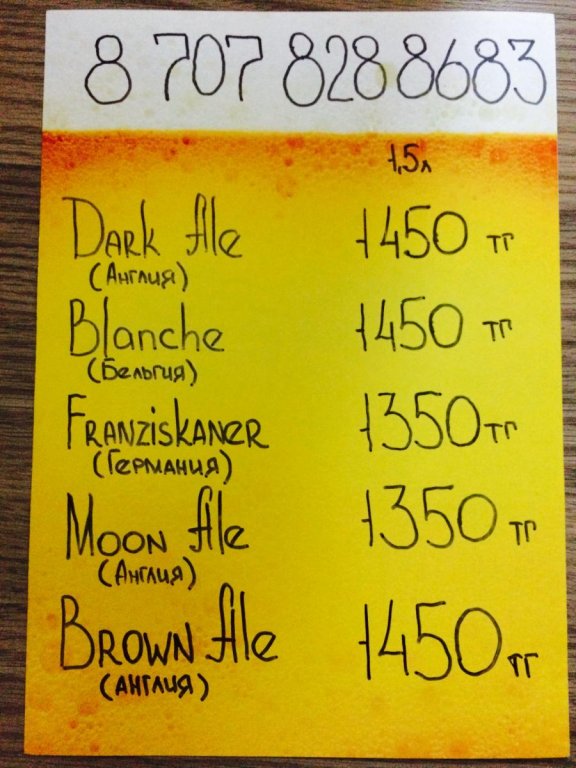 8 707 828 8683
1,5л
Dark Ale 1450 тг
(Англия)
Blanche 1450 тг
(Бельгия)
Franziskaner 1350 тг
(Германия)
Moon Ale 1350 тг
(Англия)
Brown Ale 1450 тг
(Англия)